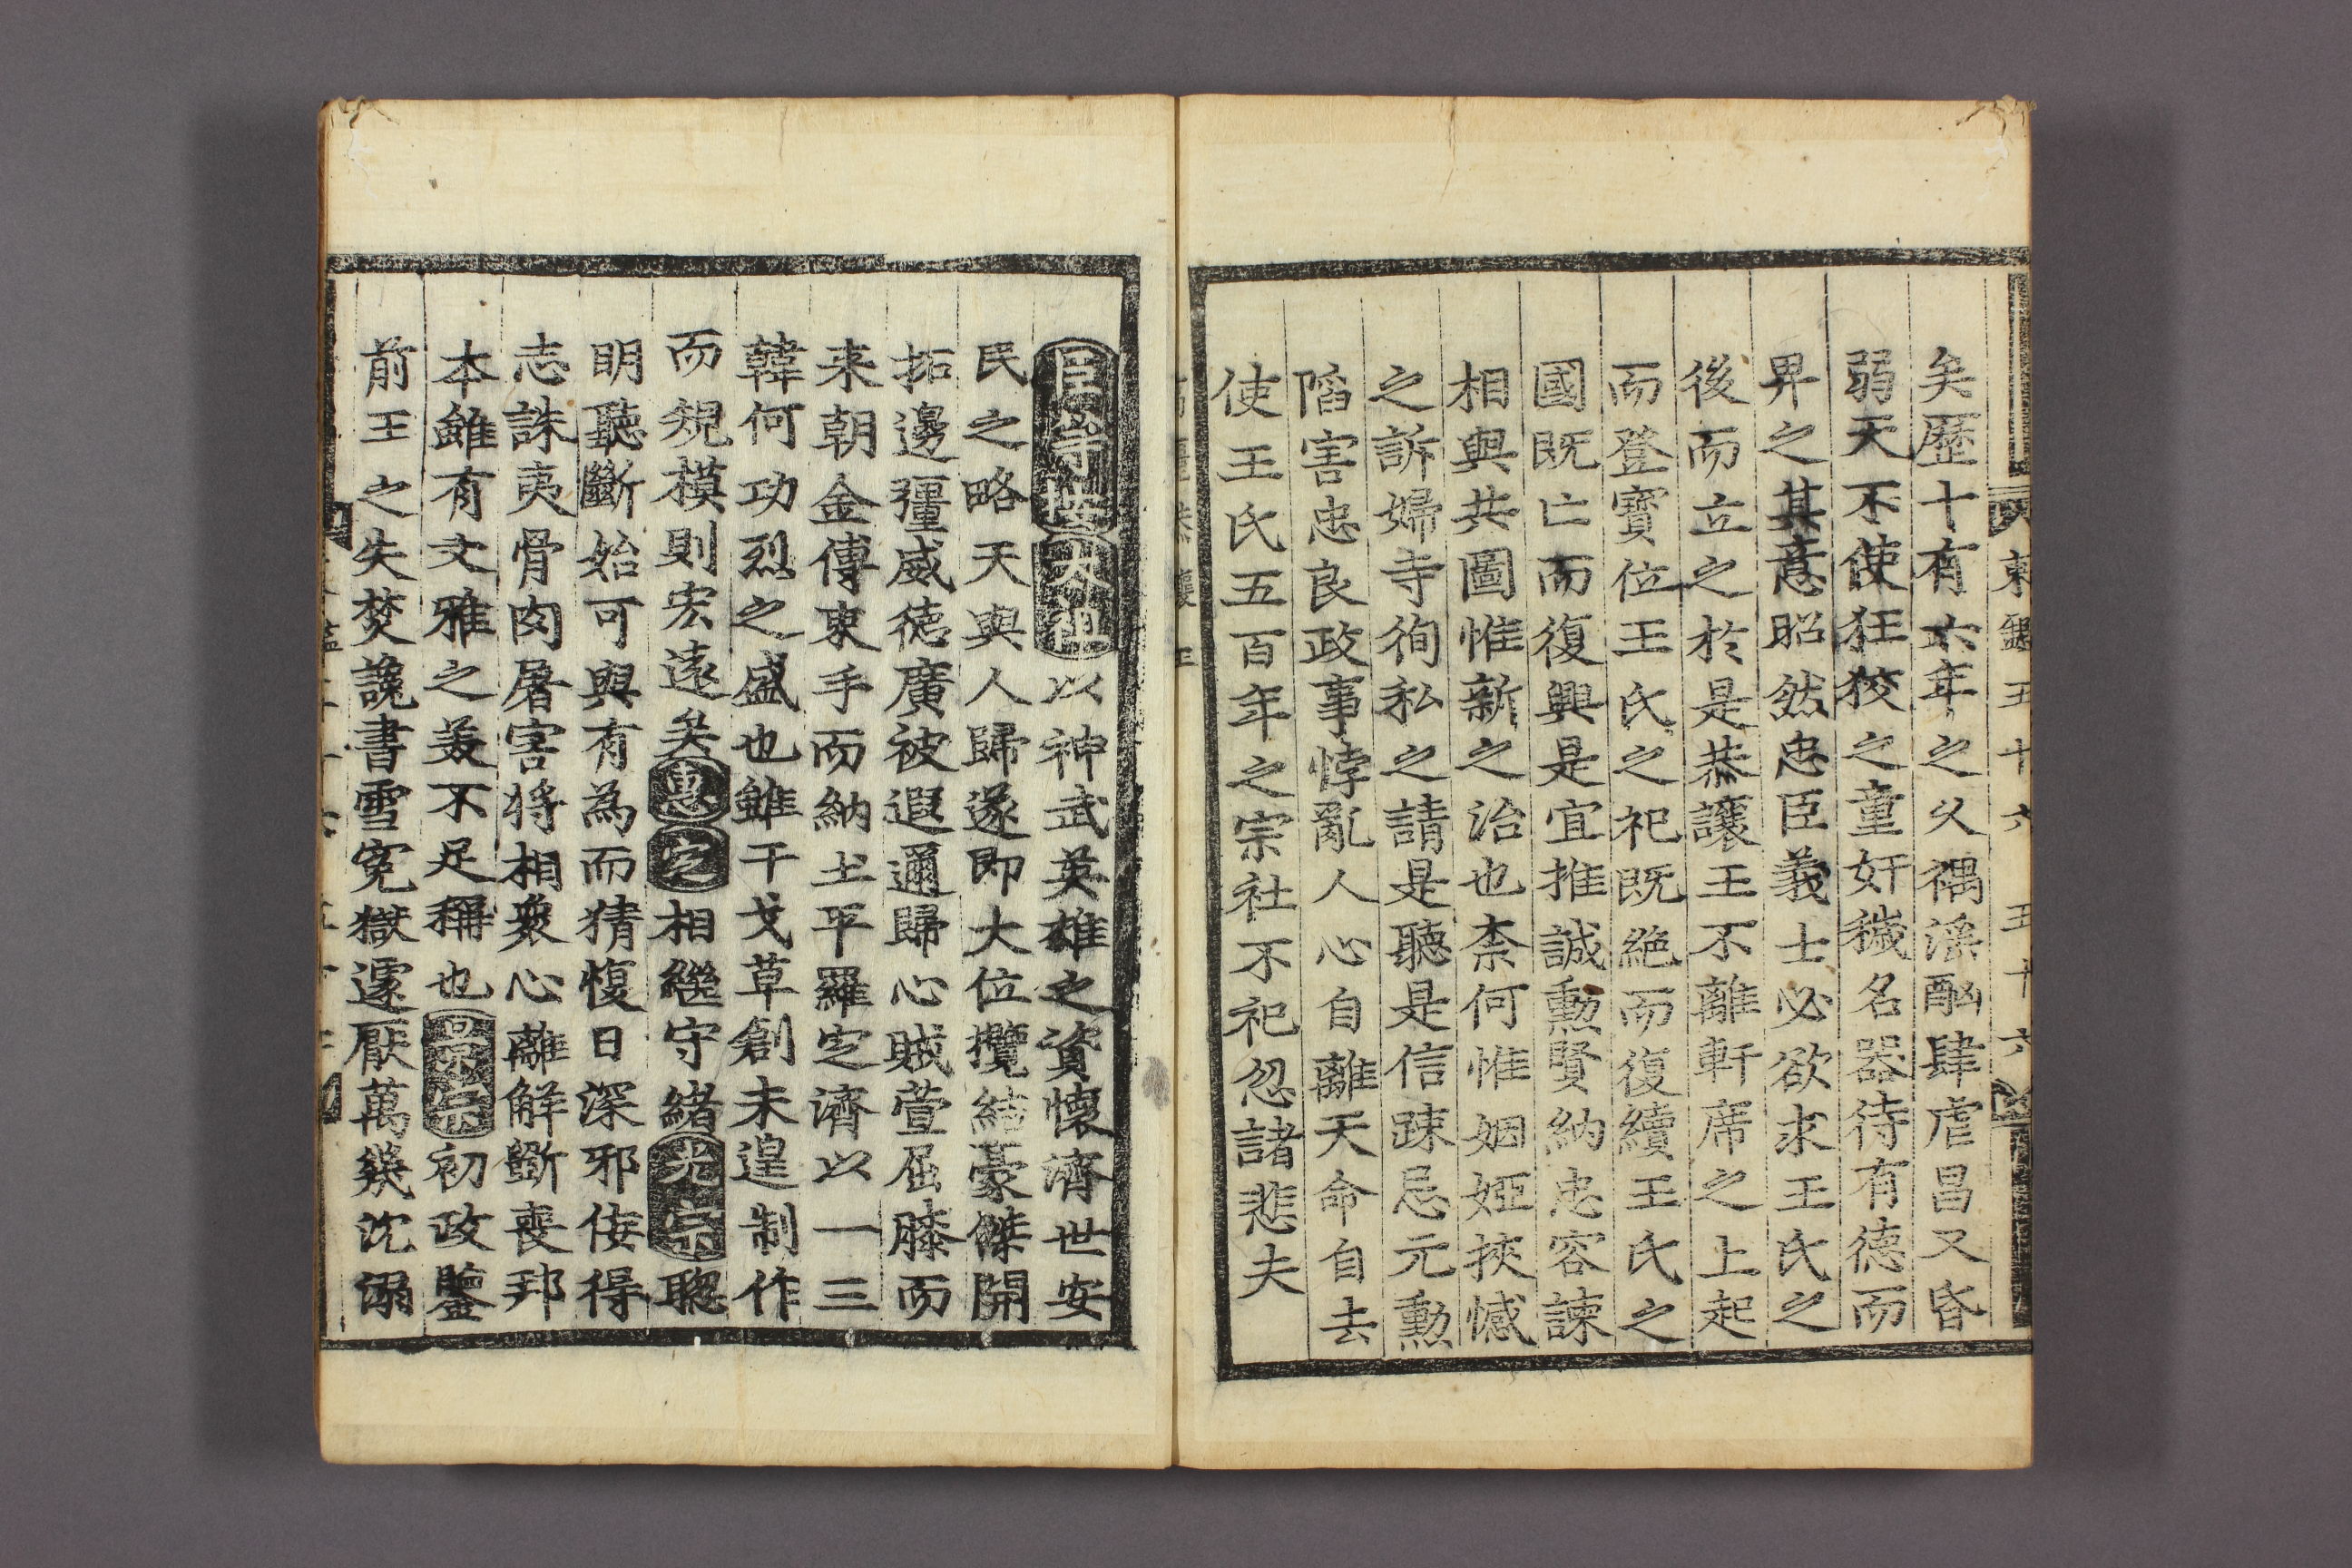 東鑑五十六 五十六
矣歷十有六年之久禑滛酗肆虐昌又昏
弱天不使狂狡之童奸穢名器待有德而
畀之其意昭然忠臣義士必欲求王氏之
後而立之於是恭讓王不離軒席之上起
而登寶位王氏之祀既絶而復續王氏之
國既亡而復興是宜推誠勲賢納忠容諫
相與共圖惟新之治也柰何惟姻婭挾憾
之訴婦寺徇私之請是聽是信踈忌元勲
䧟害忠良政事悖亂人心自離天命自去
使王氏五百年之宗社不祀忽諸悲夫
臣等按太祖以神武英雄之資懷濟世安
民之略天與人歸遂即大位攬結豪傑開
拓邊彊威德廣被遐邇歸心賊萱屈膝而
来朝金傅束手而納土平羅定濟以一三
韓何功烈之盛也雖干戈草創未遑制作
而規模則宏遠矣惠定相繼守緒光宗聦
明聽斷始可與有為而猜愎日深邪侫得
志誅夷骨肉屠害將相衆心離解斵喪邦
本雖有文雅之美不足稱也景宗初政鑒
前王之失焚讒書雪寃獄遽厭萬㡬沈溺